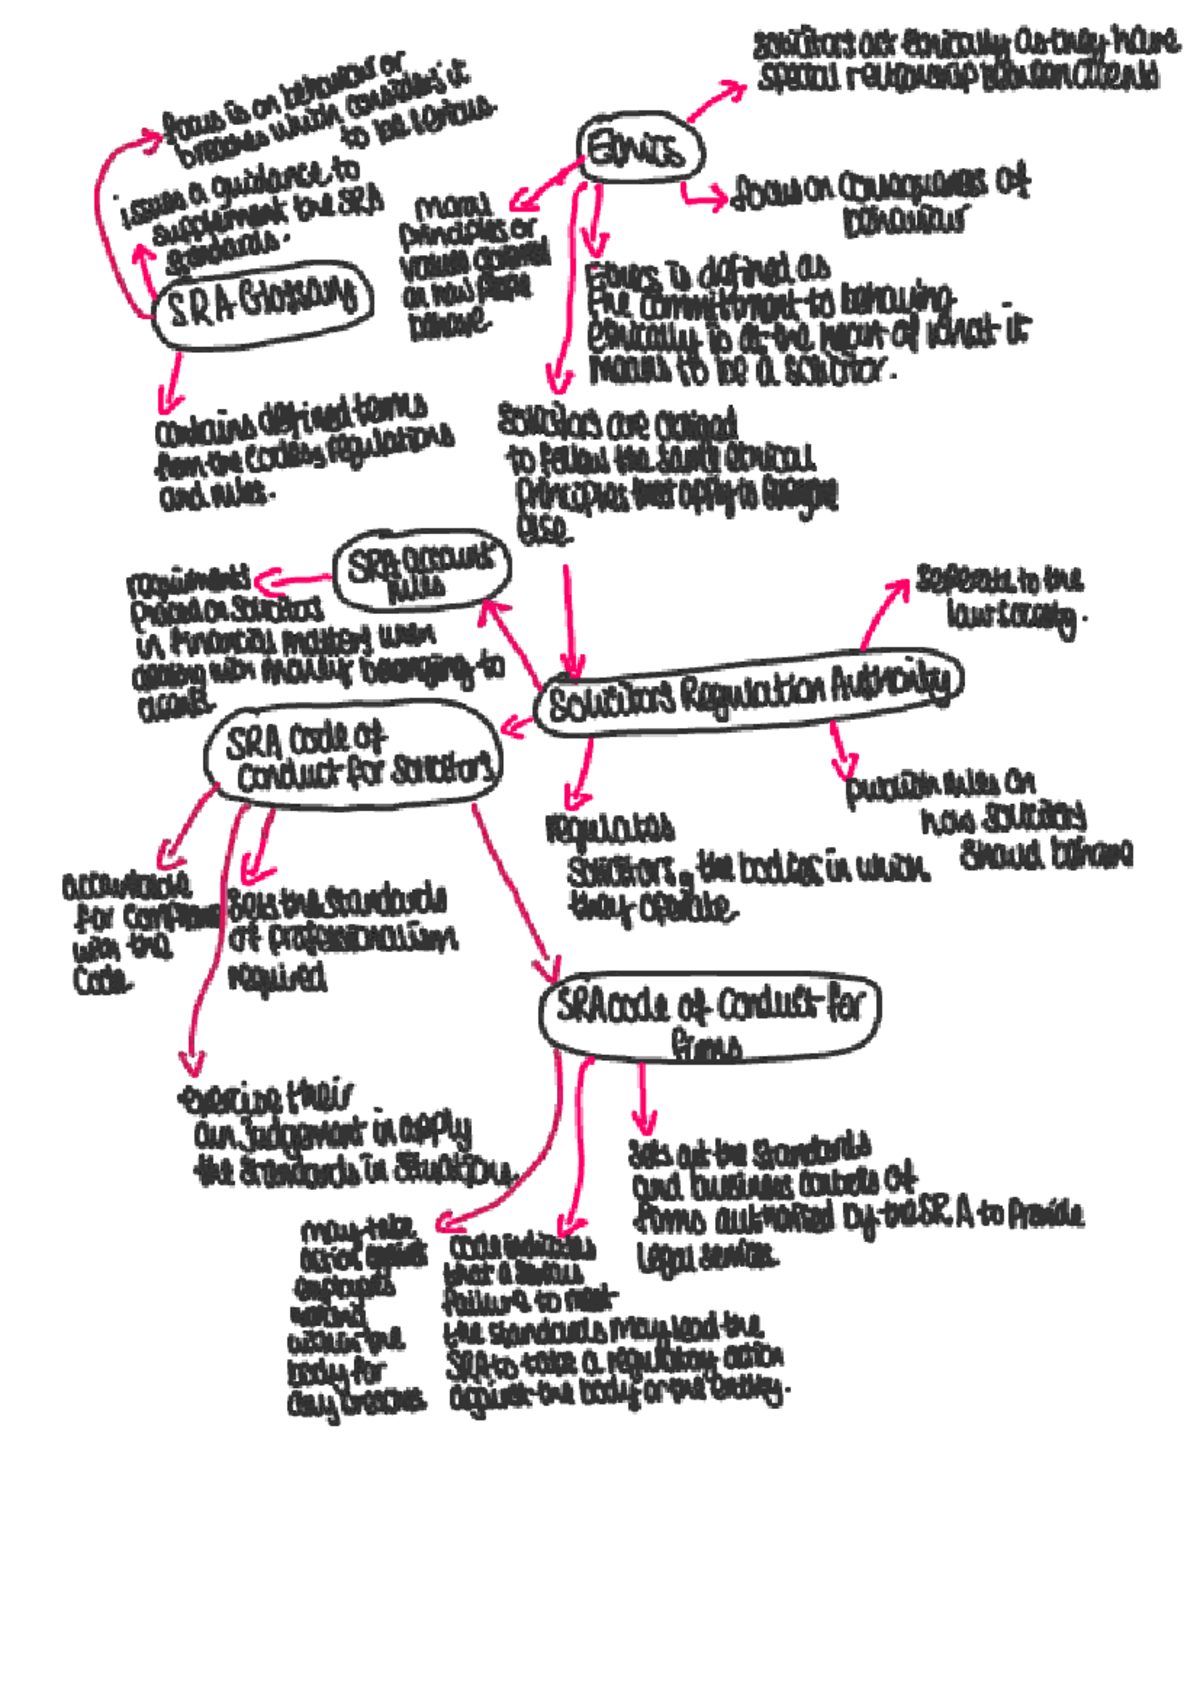 Solicitors act ethically as they have
special relationship between clients
Ethics
focus on consequences of
behaviour
moral
principles or
values
on how people
behave.
Ethics is defined as
the committment to behaving
ethically is at the heart of what it
means to be a solicitor.
Solicitors are obliged
to follow the same ethical
principles that apply to everyone
else.
focus is on behaviour or
breaches which considers it
to be serious.
issues a guidance to
supplement the SRA
standards.
SRA Glossary
contains defined terms
from the Codes, regulations
and rules.
SRA account
rules
requirments
placed on solicitors
in financial matters when
dealing with money belonging to
clients.
Solicitors Regulation Authority
seperate to the
law society.
publish rules on
how solicitors
should behave
regulates
solicitors, the bodies in which
they operate.
SRA code of
Conduct for Solicitors
accountable
for compliance
with the
Code.
Sets the standards
of professionalism
required
exercise their
own judgement in apply
the standards in situations
SRA code of conduct for
firms
Sets out the standards
and business controls of
firms authorised by the SRA to provide
legal services.
may take
action against
employees
working
within the
body for
any breaches
code indicates
that a serious
failure to meet
the standards may lead the
SRA to take a regulatory action
against the body or the entity.